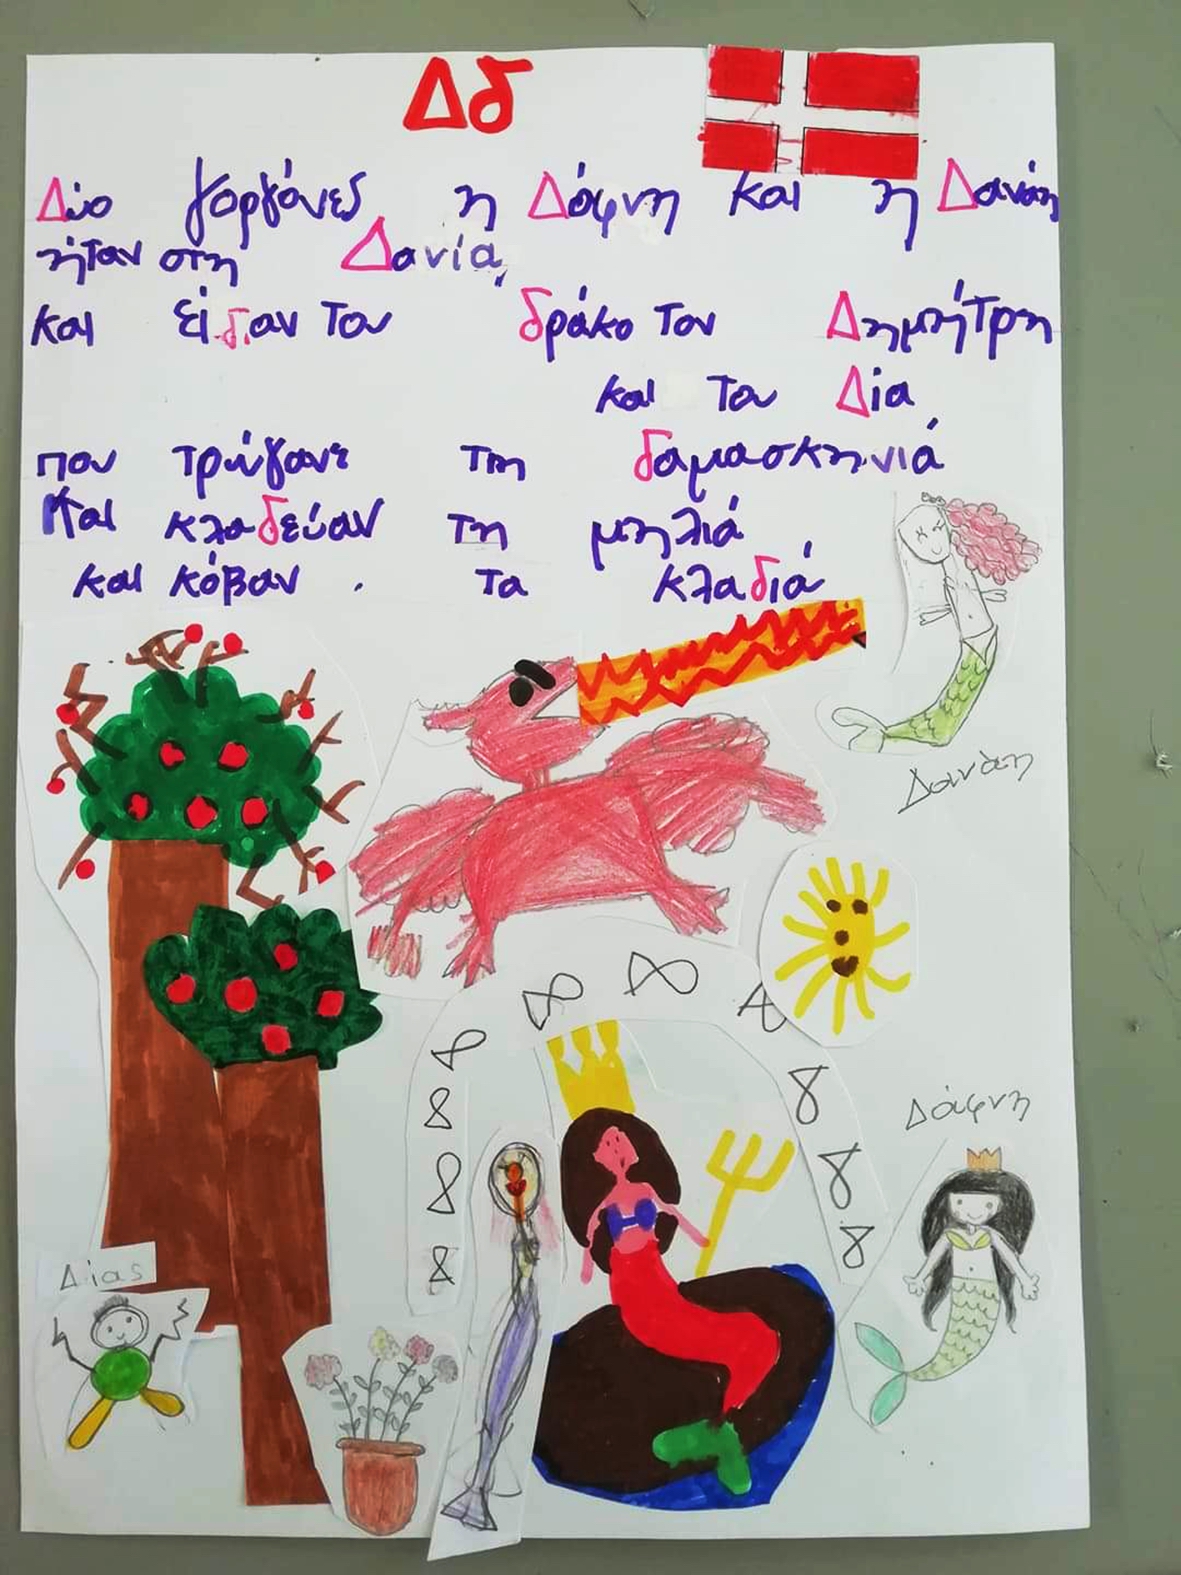 Δδ
Δύο γοργόνες η Δάφνη και η Δανάη
ήταν στη Δανία,
και είδαν τον δράκο τον Δημήτρη
και τον Δία
που τρώγανε τη δαμασκηνιά
Και κλαδεύαν τη μηλιά
και κόβαν . τα κλαδιά
Δανάη
Δάφνη
Δίας
δ δ δ
δ δ
δ δ
δ δ
δ δ